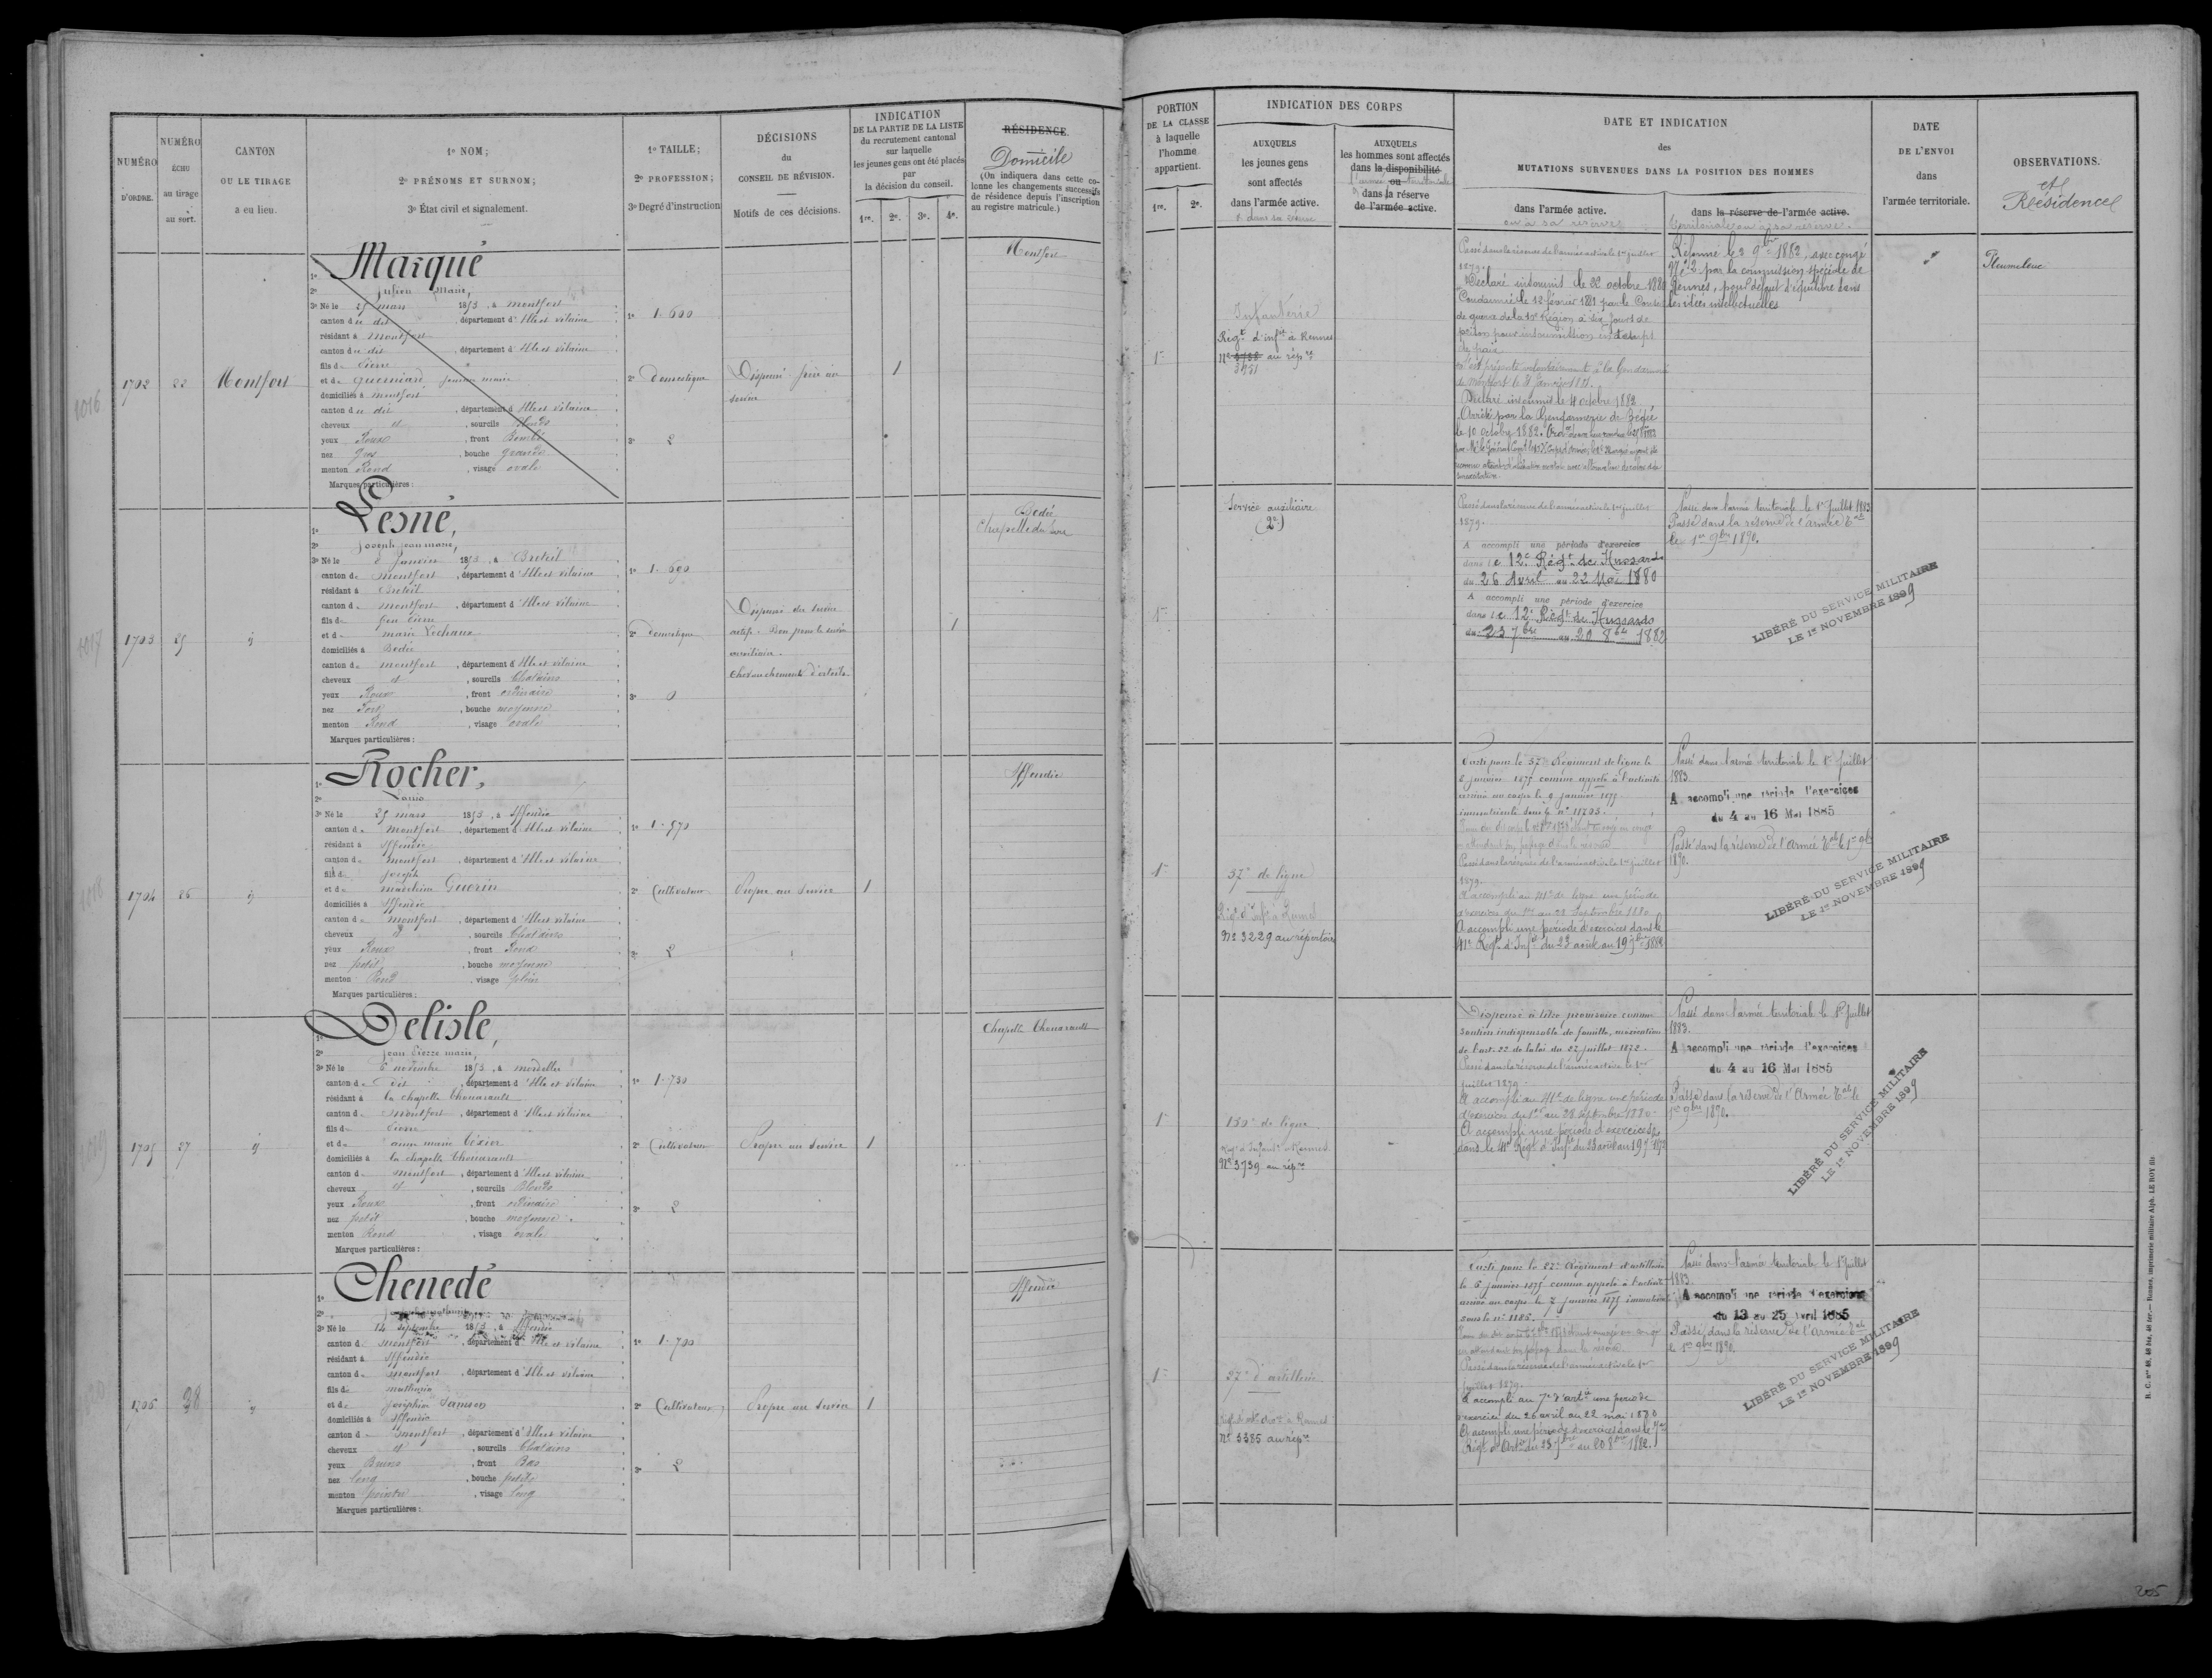 NUMÉRO
D'ORDRE.
NUMÉRO
ÉCHU
au tirage
au sort.
CANTON
OU LE TIRAGE
a eu lieu.
1º NOM;
2º PRÉNOMS ET SURNOM;
3º État civil et signalement.
1º TAILLE;
2º PROFESSION;
3º Degré d'instruction
DÉCISIONS
du
CONSEIL DE RÉVISION.
Motifs de ces décisions.
INDICATION
DE LA PARTIE DE LA LISTE
du recrutement cantonal
sur laquelle
les jeunes gens ont été placés
par
la décision du conseil.
1re. 2e. 3e. 4e.
RÉSIDENCE.
Domicile
(On indiquera dans cette co-
lonne les changements successifs
de résidence depuis l'inscription
au registre matricule.)
1016
1702
22
Montfort
Marqué
1º
2º Julien Marie,
3º Né le 25 mars 1853, à Montfort
canton du dit, département d'Ille et Vilaine
résidant à Montfort
canton du dit, département d'Ille et Vilaine
fils de Pierre
et de
domiciliés à Montfort
canton du dit, département d'Ille et Vilaine
cheveux et, sourcils Blonds
yeux Roux, front Bombé
nez gros, bouche grande
menton Rond, visage ovale
Marques particulières :
1º 1.600
2º Domestique
3º 2
Dispensé frère au
service
1
Montfort
1017
1703
25
Lesné,
1º
2º Joseph Jean marie,
3º Né le 2 Janvier 1853, à Breteil
canton de Montfort, département d'Ille et Vilaine
résidant à Breteil
canton de Montfort, département d'Ille et Vilaine
fils de feu Pierre
et de marie Lechaux
domiciliés à Bedée
canton de Montfort, département d'Ille et Vilaine
cheveux et, sourcils Chatains
yeux Roux, front ordinaire
nez Fort, bouche moyenne
menton Rond, visage ovale
Marques particulières :
1º 1.690
2º Domestique
3º 0
Dispensé du service
actif. Bon pour le service
auxiliaire.
Chevauchement d'orteils
1
Bedée
1018
1704
26
Rocher,
1º
2º Louis
3º Né le 25 mars 1853, à Iffendic
canton de Montfort, département d'Ille et Vilaine
résidant à Iffendic
canton de Montfort, département d'Ille et Vilaine
fils de Joseph
et de Guerin
domiciliés à Iffendic
canton de Montfort, département d'Ille et Vilaine
cheveux et, sourcils Chatains
yeux Roux, front Rond
nez petit, bouche moyenne
menton Rond, visage plein
Marques particulières :
1º 1.570
2º Cultivateur
3º 2
Propre au service
1
Iffendic
1019
1705
27
Delisle,
1º
2º Jean Pierre marie,
3º Né le 6 novembre 1853, à Mordelles
canton de dit, département d'Ille et Vilaine
résidant à la chapelle Thouarault
canton de Montfort, département d'Ille et Vilaine
fils de Pierre
et de anne marie Texier
domiciliés à la chapelle Thouarault
canton de Montfort, département d'Ille et Vilaine
cheveux et, sourcils Blonds
yeux Roux, front ordinaire
nez petit, bouche moyenne
menton Rond, visage ovale
Marques particulières :
1º 1.730
2º Cultivateur
3º 2
Propre au service
1
Chapelle Thouarault
1706
Chenedé
1º
2º
3º Né le 14 septembre 1853, à Iffendic
canton de Montfort, département d'Ille et Vilaine
résidant à Iffendic
canton de Montfort, département d'Ille et Vilaine
fils de mathurin
et de Josephine Samson
domiciliés à Iffendic
canton de Montfort, département d'Ille et Vilaine
cheveux et, sourcils Chatains
yeux Bruns, front Bas
nez long, bouche petite
menton pointu, visage long
Marques particulières :
1º 1.700
2º Cultivateur
3º 2
Propre au service
1
Iffendic
PORTION
DE LA CLASSE
à laquelle
l'homme
appartient.
1re. 2e.
INDICATION DES CORPS
AUXQUELS
les jeunes gens
sont affectés
dans l'armée active.
AUXQUELS
les hommes sont affectés
dans la disponibilité
ou
dans la réserve
de l'armée active.
DATE ET INDICATION
des
MUTATIONS SURVENUES DANS LA POSITION DES HOMMES
dans l'armée active.
ou à sa réserve
dans la réserve de l'armée active.
territoriale ou à sa réserve.
DATE
DE L'ENVOI
dans
l'armée territoriale.
OBSERVATIONS.
et
Résidence
Infanterie
Régt d'infie à Rennes
Nº 3738 au répre
Passé dans la réserve de l'armée active le 1er juillet
1879.
Déclaré insoumis le 22 octobre 1880
Condamné le 12 février 1881 par le Conseil
de guerre de la 10e Région à six jours de
prison pour insoumission en temps
de paix
S'est présenté volontairement à la Gendarmerie
de Montfort le 31 Janvier 1881.
Déclaré insoumis le 4 octobre 1882
Arrêté par la Gendarmerie de Bédée
le 10 octobre 1882.
Réformé le 3 9bre 1882, avec congé
Nº 2 par la commission spéciale de
Rennes, pour défaut d'équilibre dans
les idées intellectuelles
Pleumeleuc
Service auxiliaire
(2e)
Passé dans la réserve de l'armée active le 1er juillet
1879.
A accompli une période d'exercice
dans le 12e Régt de Hussards
du 26 Avril au 22 Mai 1880
A accompli une période d'exercice
dans le 12e Régt de Hussards
du 23 7bre au 20 8bre 1882
Passé dans l'armée territoriale le 1er Juillet 1883
Passé dans la réserve de l'armée Tale
le 1er 9bre 1890.
LIBÉRÉ DU SERVICE MILITAIRE
LE 1er NOVEMBRE 1899
37e de ligne
Régt d'Infie à Rennes
Nº 3229 au répertoire
Parti pour le 37e Régiment de ligne le
6 janvier 1875 comme appelé à l'activité
arrivé au corps le 9 janvier 1875
immatriculé sous le nº 11703.
Passé dans la réserve de l'armée active le 1er juillet
1879.
A accompli au 41e de ligne une période
d'exercice du 1er au 28 Septembre 1880
A accompli une période d'exercices dans le
41e Régt d'Infie du 23 août au 19 7bre 1882
Passé dans l'armée territoriale le 1er Juillet
1883.
A accompli une période d'exercices
du 4 au 16 Mai 1885
Passé dans la réserve de l'Armée Tale le 1er 9bre
1890.
LIBÉRÉ DU SERVICE MILITAIRE
LE 1er NOVEMBRE 1899
130e de ligne
Nº 3739 au répre
Dispensé à titre provisoire comme
soutien indispensable de famille, en exécution
de l'art. 22 de la loi du 27 juillet 1872.
Passé dans la réserve de l'armée active le 1er
juillet 1879.
A accompli au 41e de ligne une période
d'exercice du 1er au 28 Septembre 1880
A accompli une période d'exercices
dans le 41e Régt d'Infie du 23 août au 19 7bre 1882
Passé dans l'armée territoriale le 1er Juillet
1883.
A accompli une période d'exercices
du 4 au 16 Mai 1885
Passé dans la réserve de l'Armée Tale le
1er 9bre 1890.
LIBÉRÉ DU SERVICE MILITAIRE
LE 1er NOVEMBRE 1899
d'artillerie
Nº 3385 au répre
Parti pour le Régiment d'artillerie
le 6 janvier 1875 comme appelé à l'activité
arrivé au corps le 7 janvier 1875 immatriculé
sous le nº 1185.
Passé dans la réserve de l'armée active le 1er
juillet 1879.
A accompli au 7e d'artie une période
d'exercice du 26 avril au 22 mai 1880
A accompli une période d'exercices dans le 7e
Régt d'Artie du 23 7bre au 20 8bre 1882.
Passé dans l'armée territoriale le 1er Juillet
1883.
A accompli une période d'exercices
du 13 au 25 Avril 1885
Passé dans la réserve de l'Armée Tale
le 1er 9bre 1890.
LIBÉRÉ DU SERVICE MILITAIRE
LE 1er NOVEMBRE 1899
205